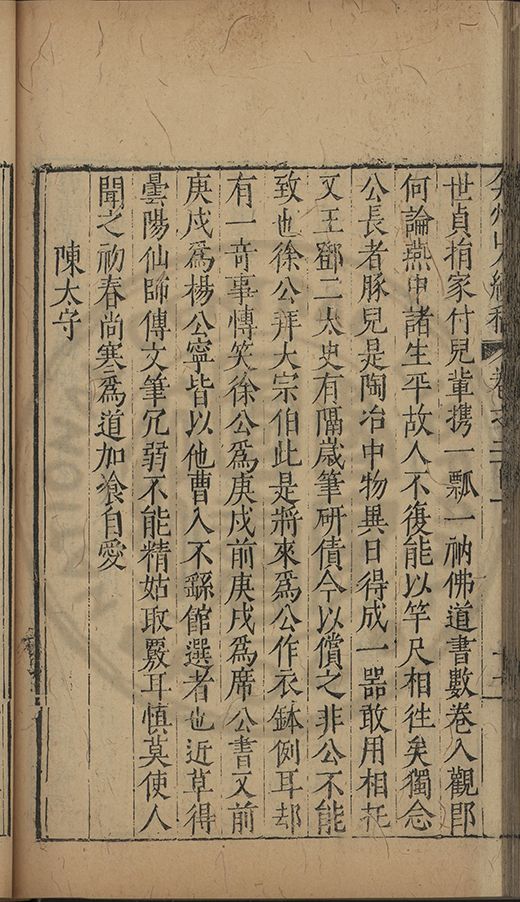 弇州山人續稿 卷之二百
世貞捐家付兒輩攜一瓢一衲佛道書數卷入觀卽
何論燕中諸生平故人不復能以竿尺相徃矣獨念
公長者豚兒是陶冶中物異日得成一噐敢用相托
又王鄧二太史有隔歲筆研債今以償之非公不能
致也徐公拜大宗伯此是將來爲公作衣鉢例耳却
有一竒事慱笑徐公爲庚戌前庚戌爲席公書又前
庚戌爲楊公寧皆以他曹入不繇館選者也近草得
曇陽仙師傳文筆冗弱不能精姑取覈耳慎莫使人
聞之初春尚寒爲道加飡自愛
陳太守